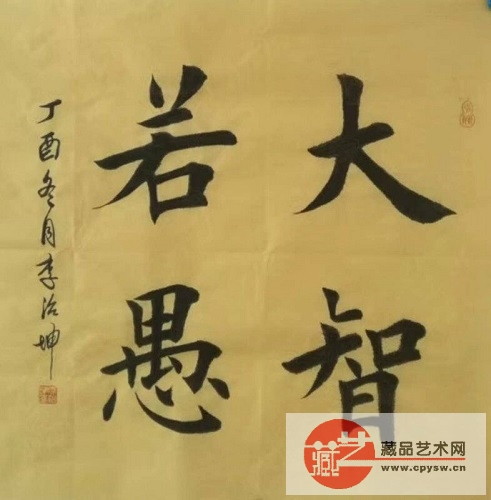 大智
若愚
丁酉冬月李治坤
藏艺
藏品艺术网
www.cpysw.cn